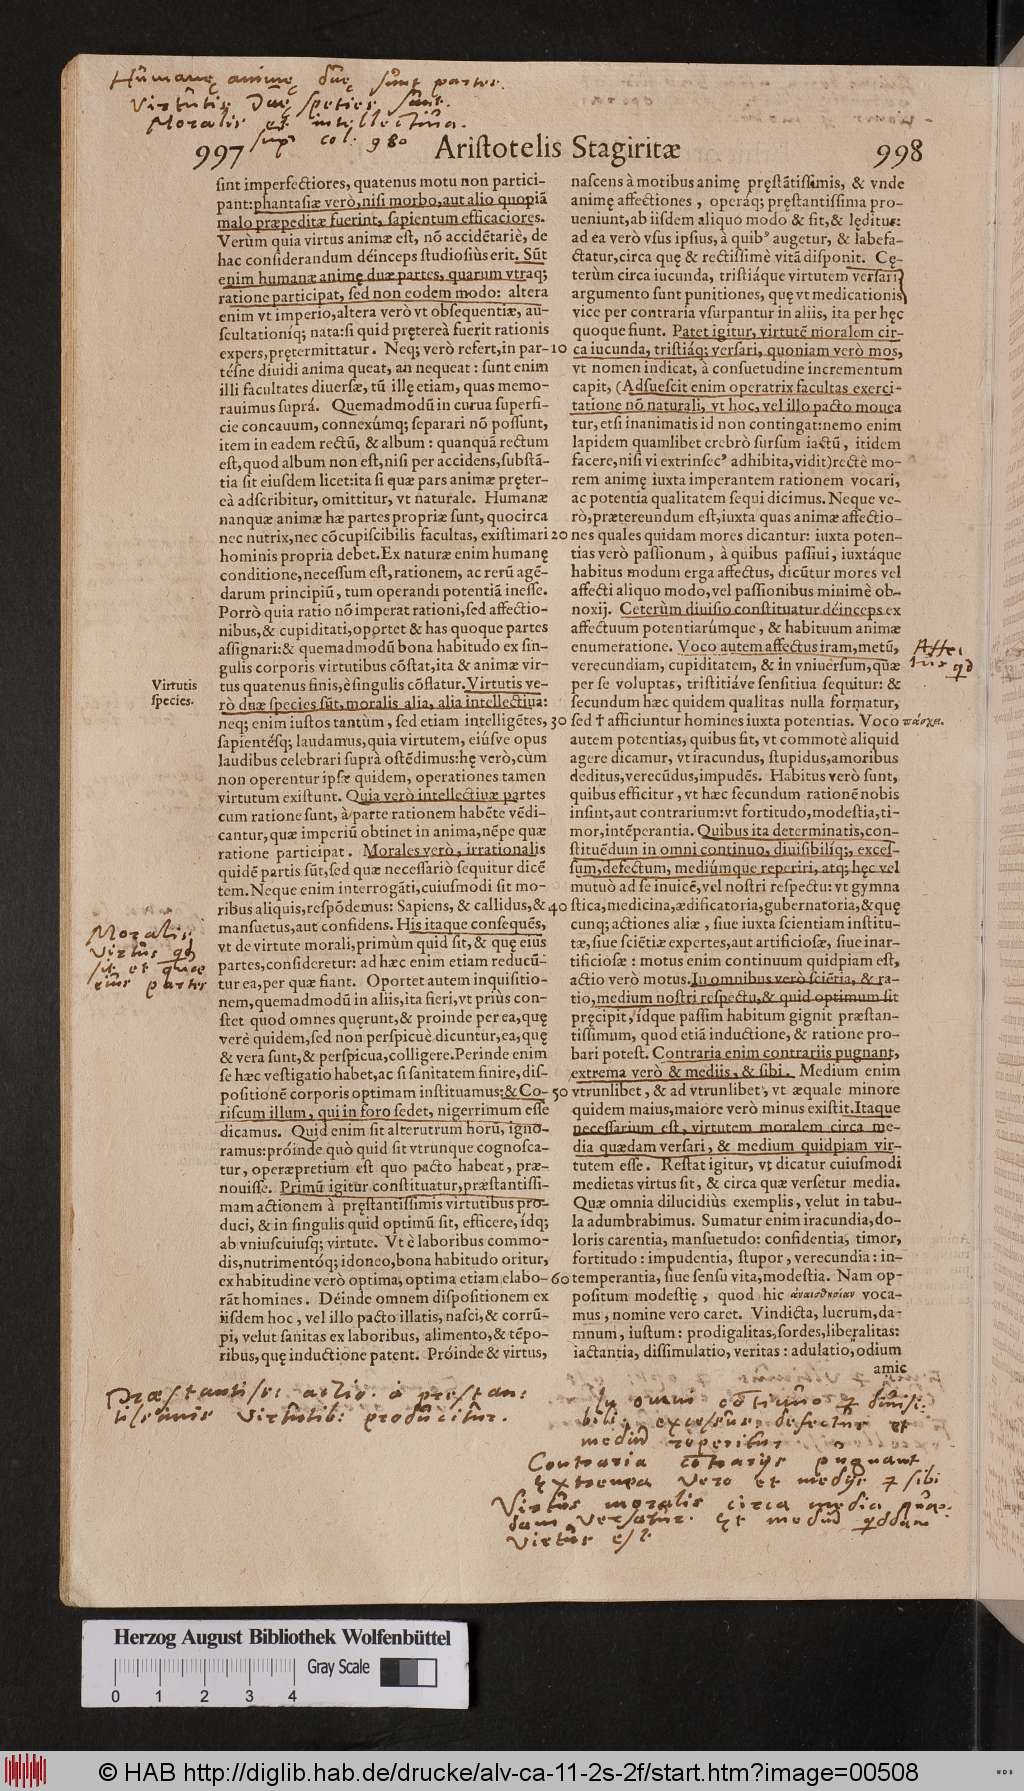 Humanę animę duę sunt partes.
Virtutis Duę species sunt.
Moralis et intellectiua.
sup col. 980
997 Aristotelis Stagiritæ 998
sint imperfectiores, quatenus motu non partici-
pant: phantasiæ verò, nisi morbo, aut alio quopiã
malo præpeditæ fuerint, sapientum efficaciores.
Verùm quia virtus animæ est, nõ accidẽtariẽ, de
hac considerandum déinceps studiosiùs erit. Sũt
enim humanæ animę duæ partes, quarum vtraq;
ratione participat, sed non eodem modo: altera
enim vt imperio, altera verò vt obsequentiæ, au-
scultationíq; nata: si quid pręterea fuerit rationis
expers, prętermittatur. Neq; verò refert, in par-
tésne diuidi anima queat, an nequeat: sunt enim
illi facultates diuersæ, tũ illę etiam, quas memo-
rauimus suprá. Quemadmodũ in curua superfi-
cie concauum, connexúmq; separari nõ possunt,
item in eadem rectũ, & album: quanquã rectum
est, quod album non est, nisi per accidens, substã-
tia sit eiusdem licet: ita si quæ pars animæ pręter-
eà adscribitur, omittitur, vt naturale. Humanæ
nanquæ animæ hæ partes propriæ sunt, quocirca
nec nutrix, nec cõcupiscibilis facultas, existimari
hominis propria debet. Ex naturæ enim humanę
conditione, necessum est, rationem, ac rerũ agẽ-
darum principiũ, tum operandi potentiã inesse.
Porrò quia ratio nõ imperat rationi, sed affectio-
nibus, & cupiditati, oportet & has quoque partes
assignari: & quemadmodũ bona habitudo ex sin-
gulis corporis virtutibus cõstat, ita & animæ vir-
tus quatenus finis, è singulis cõflatur. Virtutis ve-
rò duæ species sũt, moralis alia, alia intellectiua:
neq; enim iustos tantùm, sed etiam intelligẽtes,
sapientésq; laudamus, quia virtutem, eiúsve opus
laudibus celebrari suprà ostẽdimus: hę verò, cum
non operentur ipsæ quidem, operationes tamen
virtutum existunt. Quia verò intellectiuæ partes
cum ratione sunt, à parte rationem habẽte vẽdi-
cantur, quæ imperiũ obtinet in anima, nẽpe quæ
ratione participat. Morales verò, irrationalis
quidẽ partis sũt, sed quæ necessariò sequitur dicẽ
tem. Neque enim interrogãti, cuiusmodi sit mo-
ribus aliquis, respõdemus: Sapiens, & callidus, &
mansuetus, aut confidens. His itaque consequẽs,
vt de virtute morali, primùm quid sit, & quę eius
partes, consideretur: ad hæc enim etiam reducũ-
tur ea, per quæ fiant. Oportet autem inquisitio-
nem, quemadmodũ in aliis, ita fieri, vt priùs con-
stet quod omnes quęrunt, & proinde per ea, quę
verè quidem, sed non perspicuè dicuntur, ea, quę
& vera sunt, & perspicua, colligere. Perinde enim
se hæc vestigatio habet, ac si sanitatem finire, dis-
positionẽ corporis optimam instituamus: & Co-
riscum illum, qui in foro sedet, nigerrimum esse
dicamus. Quid enim sit alterutrum horũ, igno-
ramus: próinde quò quid sit vtrunque cognosca-
tur, operæpretium est quo pacto habeat, præ-
nouisse. Primũ igitur constituatur, præstantissi-
mam actionem à pręstantissimis virtutibus pro-
duci, & in singulis quid optimũ sit, efficere, idq;
ab vniuscuiusq; virtute. Vt è laboribus commo-
dis, nutrimentóq; idoneo, bona habitudo oritur,
ex habitudine verò optima, optima etiam elabo-
rãt homines. Déinde omnem dispositionem ex
iisdem hoc, vel illo pacto illatis, nasci, & corrũ-
pi, velut sanitas ex laboribus, alimento, & tẽpo-
ribus, quę inductione patent. Próinde & virtus,
Virtutis
species.
Moralis
Virtus qd
sit et quæ
eius partes
10
20
30
40
50
60
nascens à motibus animę pręstãtissimis, & vnde
animę affectiones, operáq; pręstantissima pro-
ueniunt, ab iisdem aliquo modo & fit, & lęditur:
ad ea verò vsus ipsius, à quib⁹ augetur, & labefa-
ctatur, circa quę & rectissimè vitã disponit. Cę-
terùm circa iucunda, tristiáque virtutem versari
argumento sunt punitiones, quę vt medicationis
vice per contraria vsurpantur in aliis, ita per hęc
quoque fiunt. Patet igitur, virtutẽ moralem cir-
ca iucunda, tristiáq; versari, quoniam verò mos,
vt nomen indicat, à consuetudine incrementum
capit, (Adsuescit enim operatrix facultas exerci-
tatione nõ naturali, vt hoc, vel illo pacto mouea
tur, etsi inanimatis id non contingat: nemo enim
lapidem quamlibet crebrò sursum iactũ, itidem
facere, nisi vi extrinsec⁹ adhibita, vidit) rectè mo-
rem animę iuxta imperantem rationem vocari,
ac potentia qualitatem sequi dicimus. Neque ve-
rò, prætereundum est, iuxta quas animæ affectio-
nes quales quidam mores dicantur: iuxta poten-
tias verò passionum, à quibus passiui, iuxtáque
habitus modum erga affectus, dicũtur mores vel
affecti aliquo modo, vel passionibus minimè ob-
noxij. Ceterùm diuisio constituatur déinceps ex
affectuum potentiarúmque, & habituum animæ
enumeratione. Voco autem affectus iram, metũ,
verecundiam, cupiditatem, & in vniuersum, quæ
per se voluptas, tristitiáve sensitiua sequitur: &
secundum hæc quidem qualitas nulla formatur,
sed † afficiuntur homines iuxta potentias. Voco
autem potentias, quibus fit, vt commotè aliquid
agere dicamur, vt iracundus, stupidus, amoribus
deditus, verecũdus, impudẽs. Habitus verò sunt,
quibus efficitur, vt hæc secundum rationẽ nobis
insint, aut contrarium: vt fortitudo, modestia, ti-
mor, intẽperantia. Quibus ita determinatis, con-
stituẽdum in omni continuo, diuisibilíq;, exces-
sum, defectum, mediúmque reperiri, atq; hęc vel
mutuò ad se inuicẽ, vel nostri respectu: vt gymna
stica, medicina, ædificatoria, gubernatoria, & quę
cunq; actiones aliæ, siue iuxta scientiam institu-
tæ, siue sciẽtiæ expertes, aut artificiosæ, siue inar-
tificiosæ: motus enim continuum quidpiam est,
actio verò motus. In omnibus verò sciẽtia, & ra-
tio, medium nostri respectu, & quid optimum sit
pręcipit, ídque passim habitum gignit præstan-
tissimum, quod etiã inductione, & ratione pro-
bari potest. Contraria enim contrariis pugnant,
extrema verò & mediis, & sibi. Medium enim
vtrunlibet, & ad vtrunlibet, vt æquale minore
quidem maius, maiore verò minus existit. Itaque
necessarium est, virtutem moralem circa me-
dia quædam versari, & medium quidpiam vir-
tutem esse. Restat igitur, vt dicatur cuiusmodi
medietas virtus sit, & circa quæ versetur media.
Quæ omnia dilucidiùs exemplis, velut in tabu-
la adumbrabimus. Sumatur enim iracundia, do-
loris carentia, mansuetudo: confidentia, timor,
fortitudo: impudentia, stupor, verecundia: in-
temperantia, siue sensu vita, modestia. Nam op-
positum modestię, quod hic ἀναισθησίαν voca-
mus, nomine vero caret. Vindicta, lucrum, da-
mnum, iustum: prodigalitas, sordes, liberalitas:
iactantia, dissimulatio, veritas: adulatio, odium
amic
Affec
tus qd
πάσχει.
Præstantiss: actio à prestan:
tissimis virtutib: producitur.
In omni cōtinuo & diuisi:
bili: excessus, defectus et
mediũ reperitur
Contraria cōtrarijs pugnant
Extrema vero et medijs & sibi
Virtus moralis circa media quæ-
dam versatur. Et mediũ qddam
virtus est.
Herzog August Bibliothek Wolfenbüttel
Gray Scale
0 1 2 3 4
© HAB http://diglib.hab.de/drucke/alv-ca-11-2s-2f/start.htm?image=00508